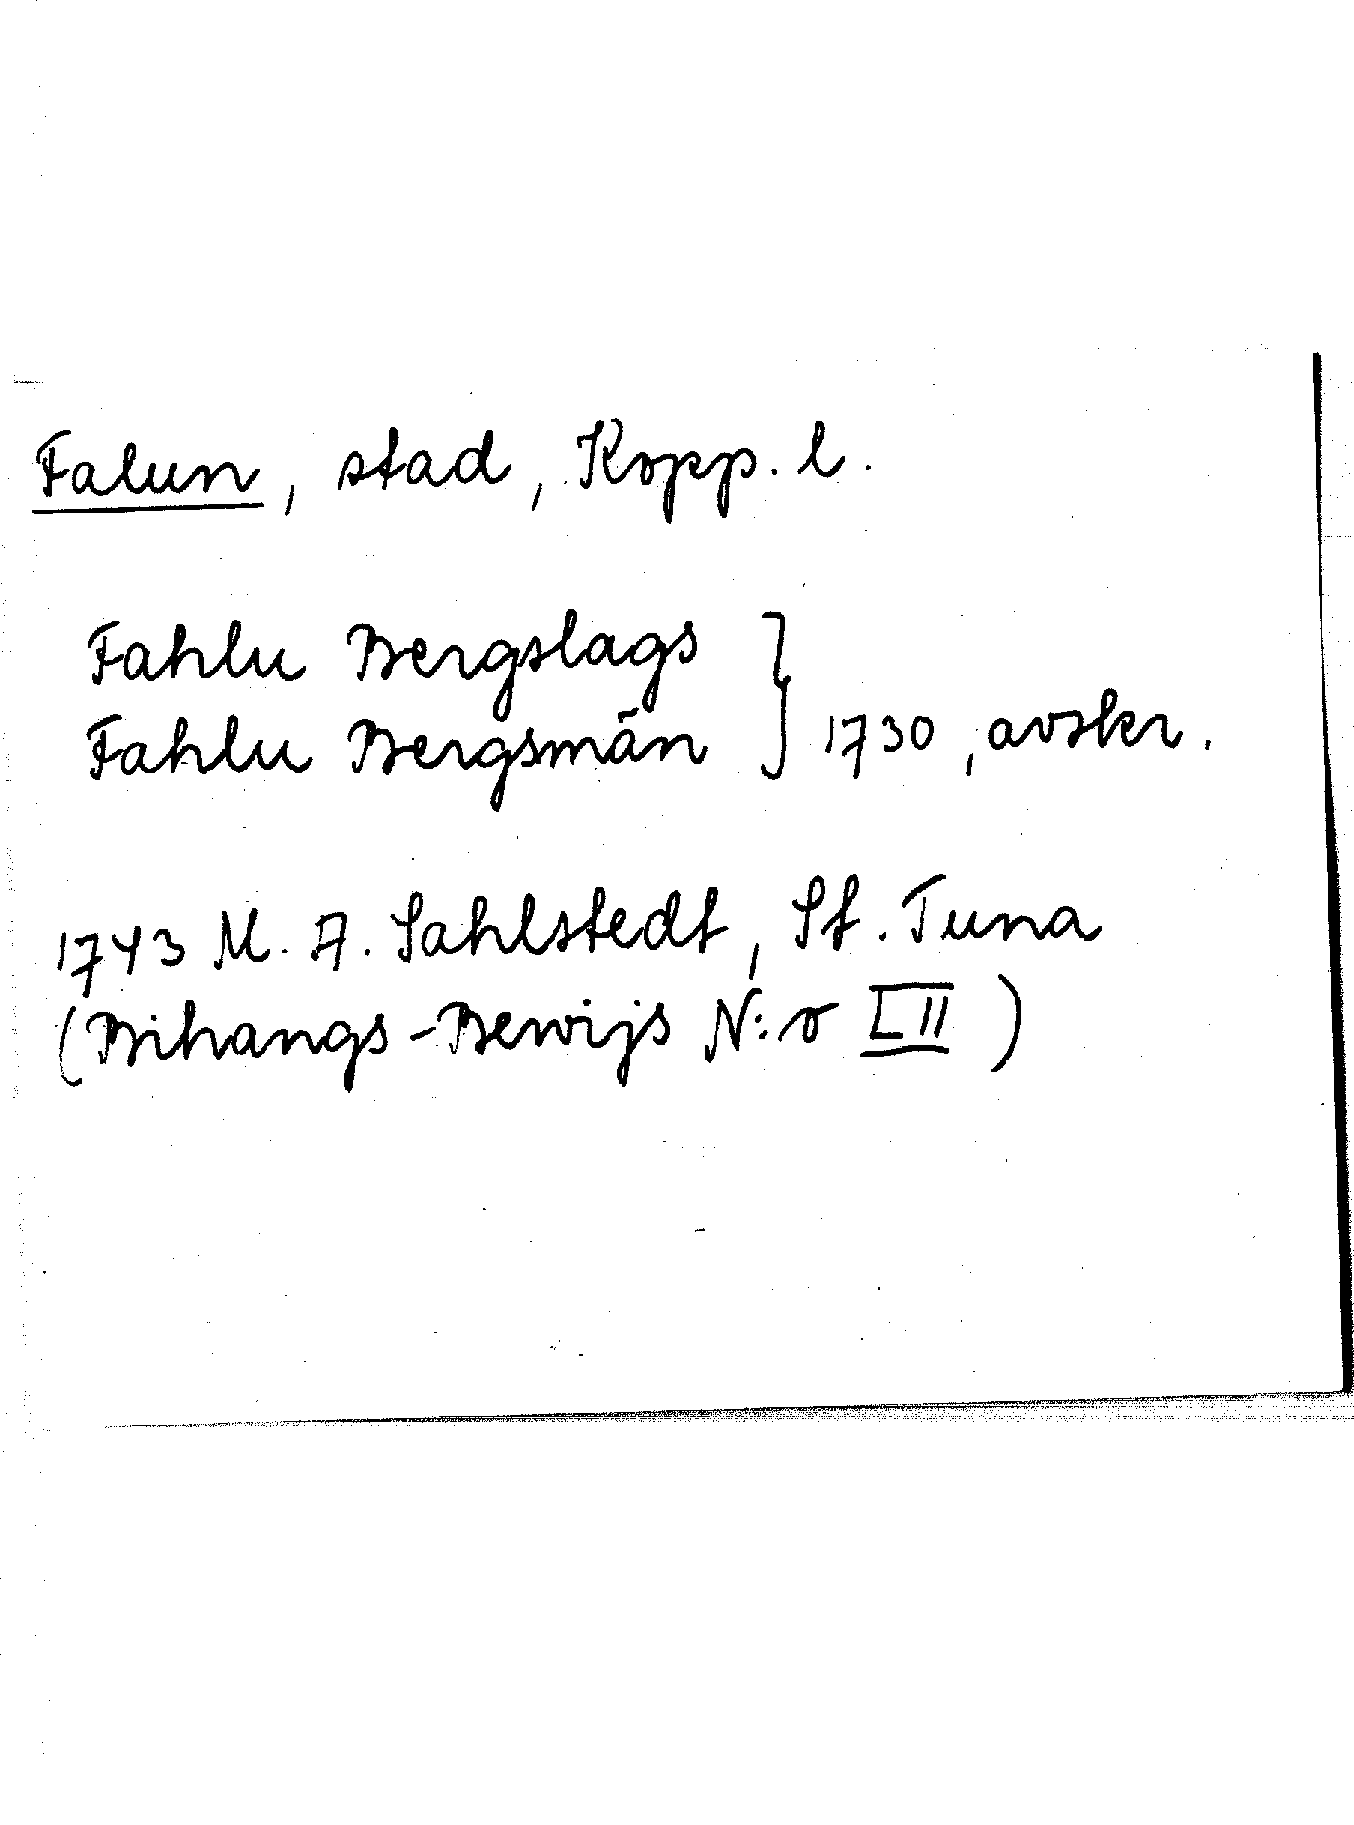 Falun, stad, Kopp. l.
Fahlu Bergslags
Fahlu Bergsmän } 1730, avskr.
1743 M. A. Sahlstedt, St. Tuna
(Bihangs-Bewijs N:o LII)